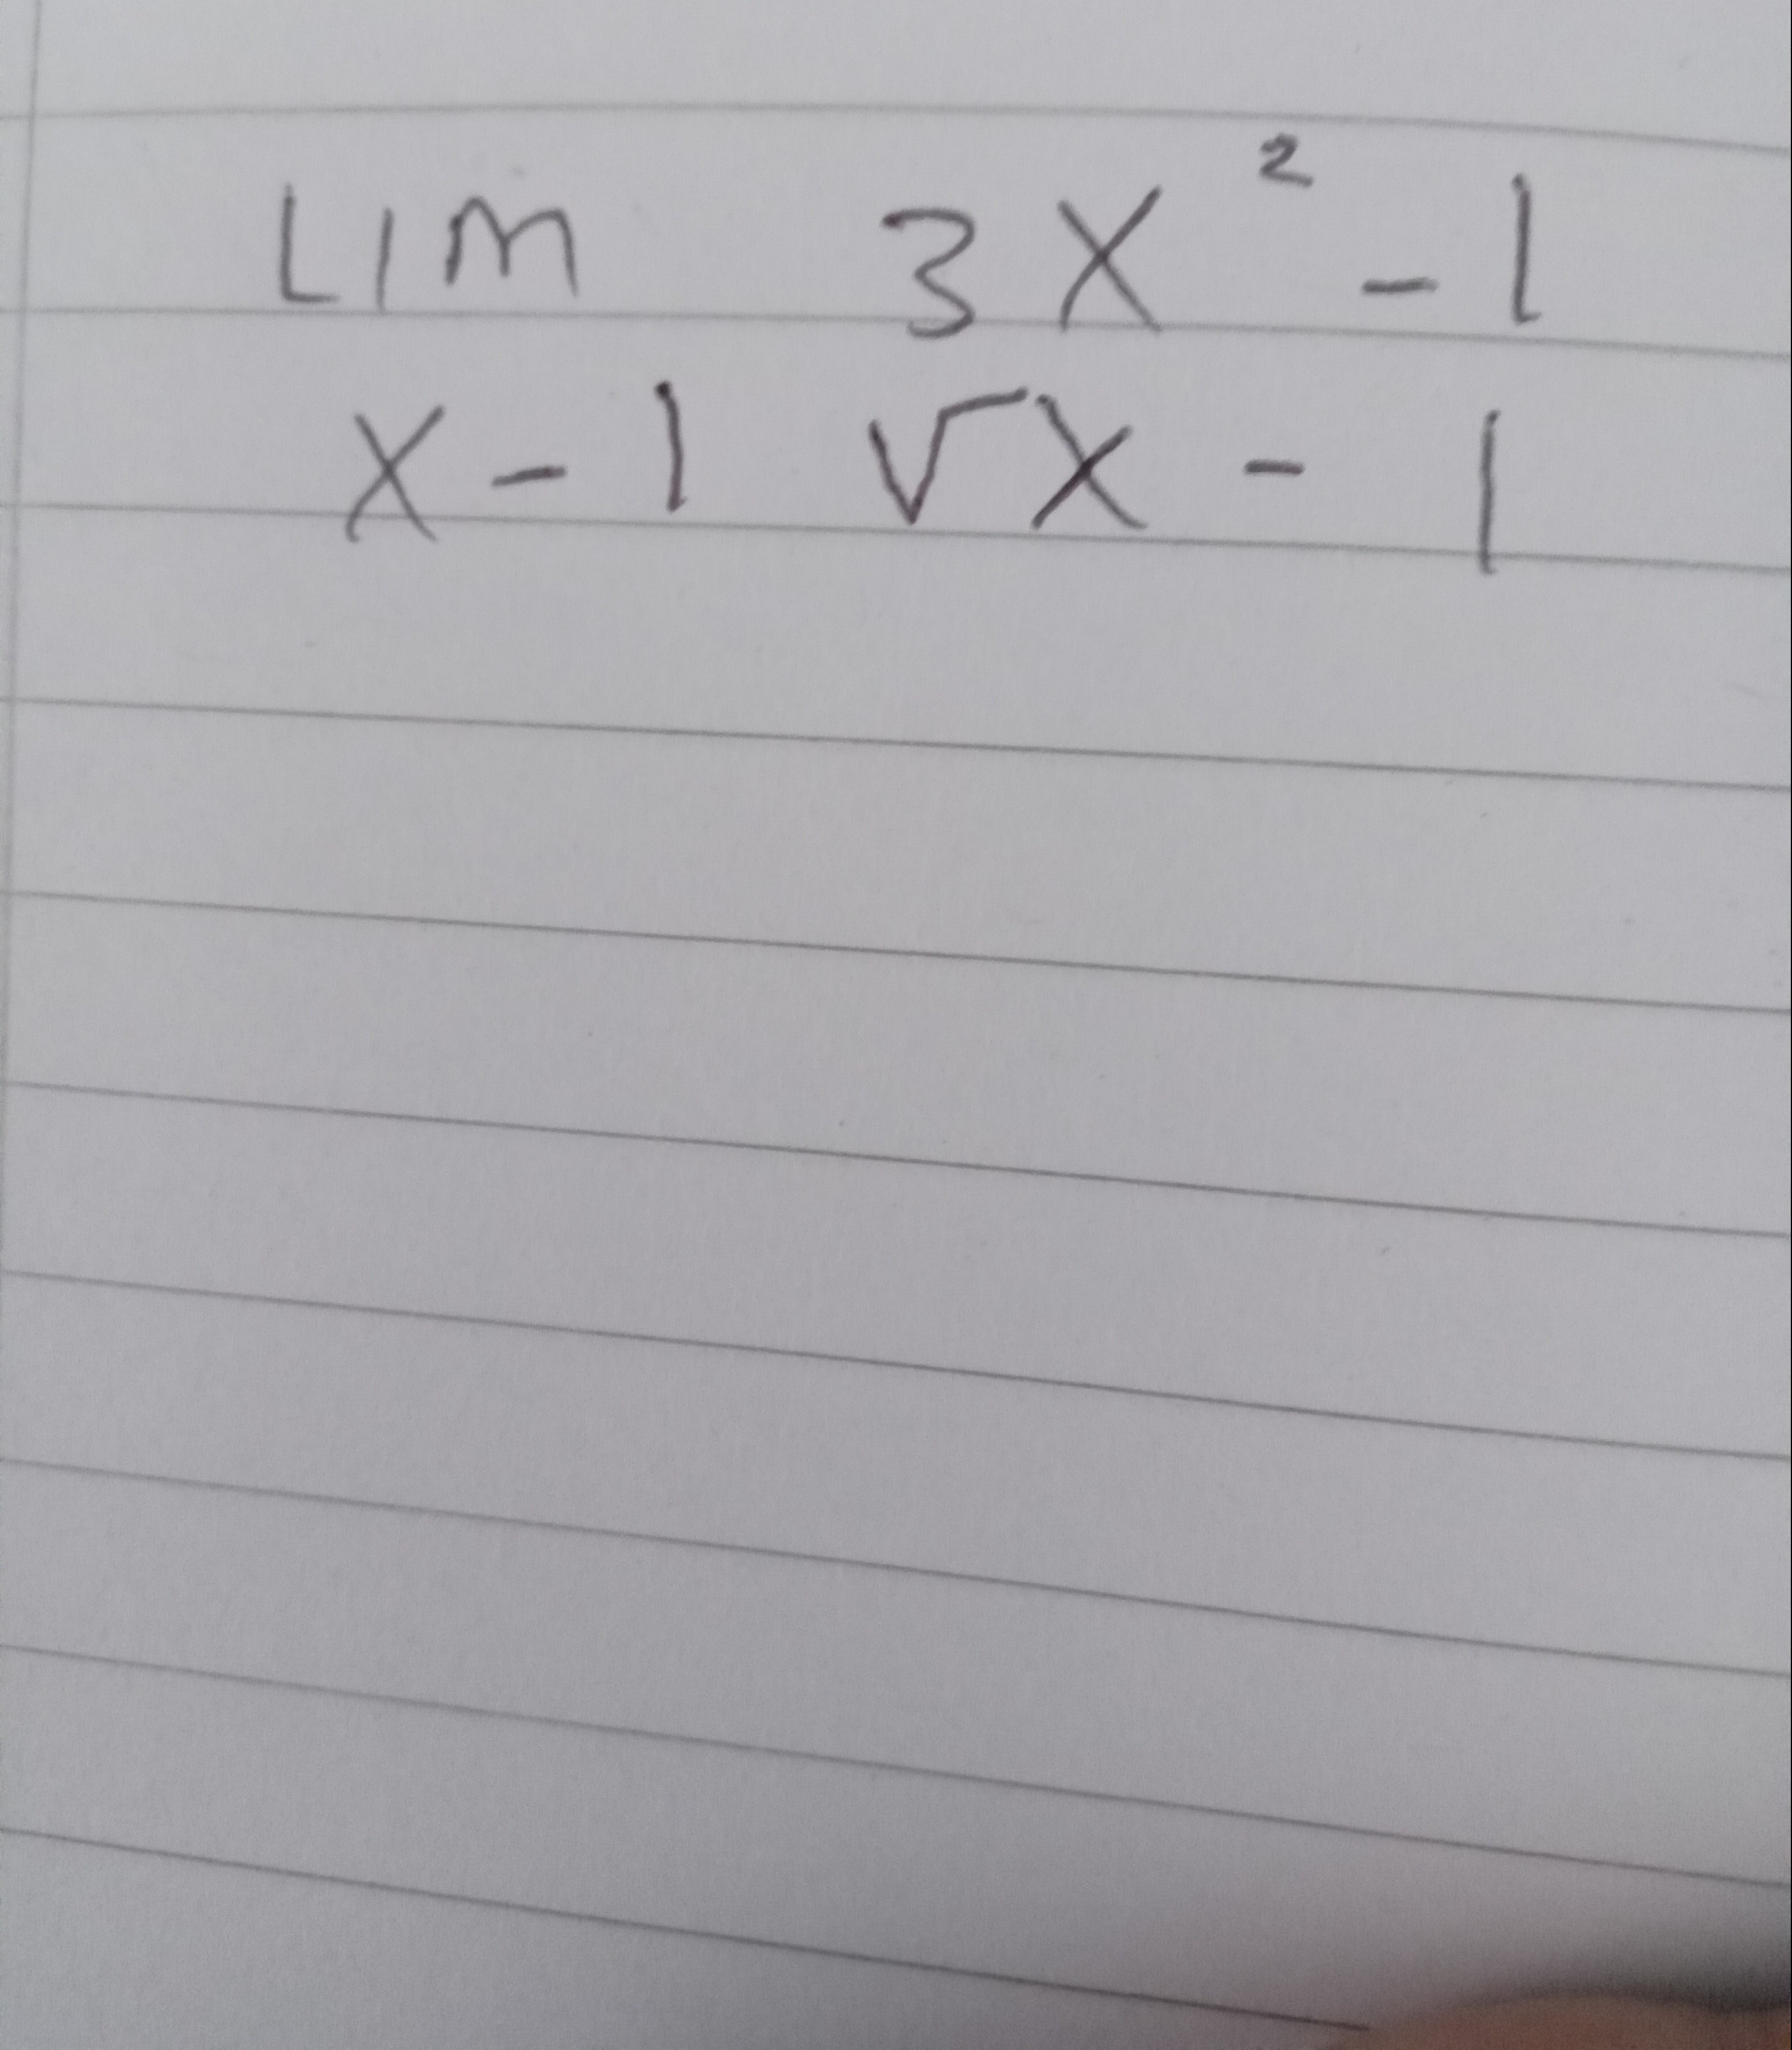 LIM 3X² - 1
X - 1 √X - 1